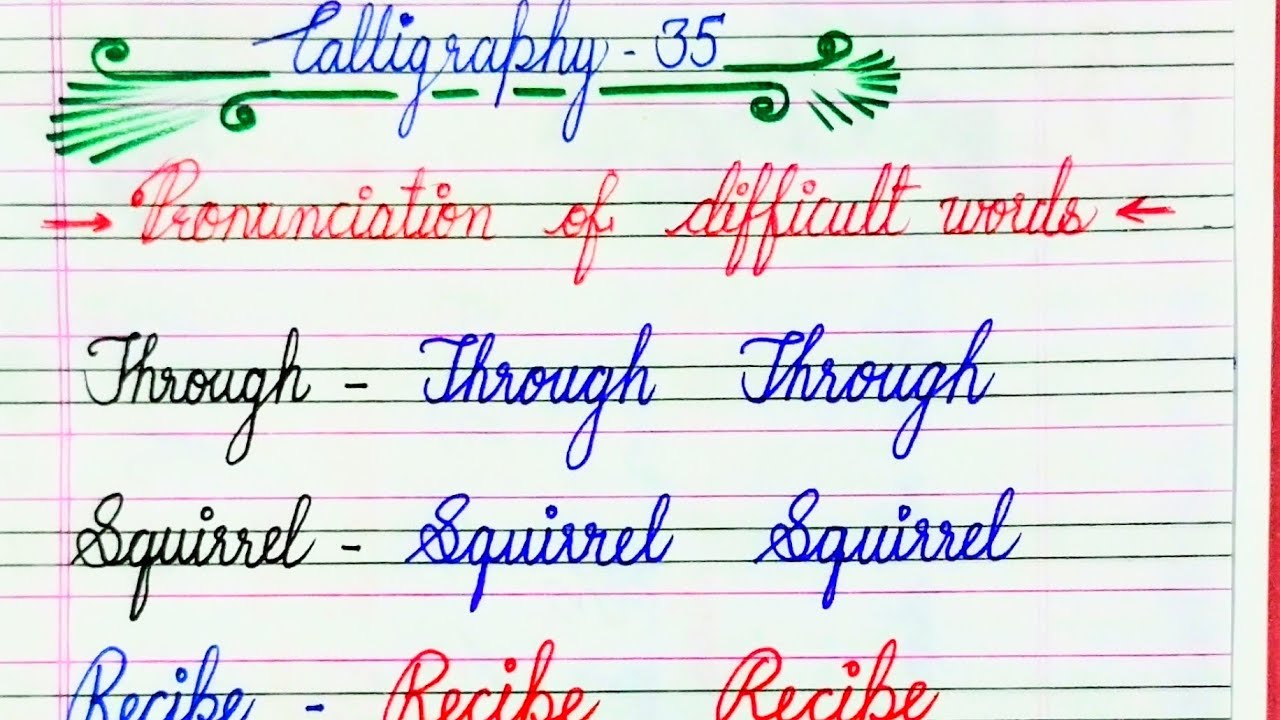 Calligraphy - 35
→ Pronunciation of difficult words ←
Through - Through Through
Squirrel - Squirrel Squirrel
Recipe - Recipe Recipe